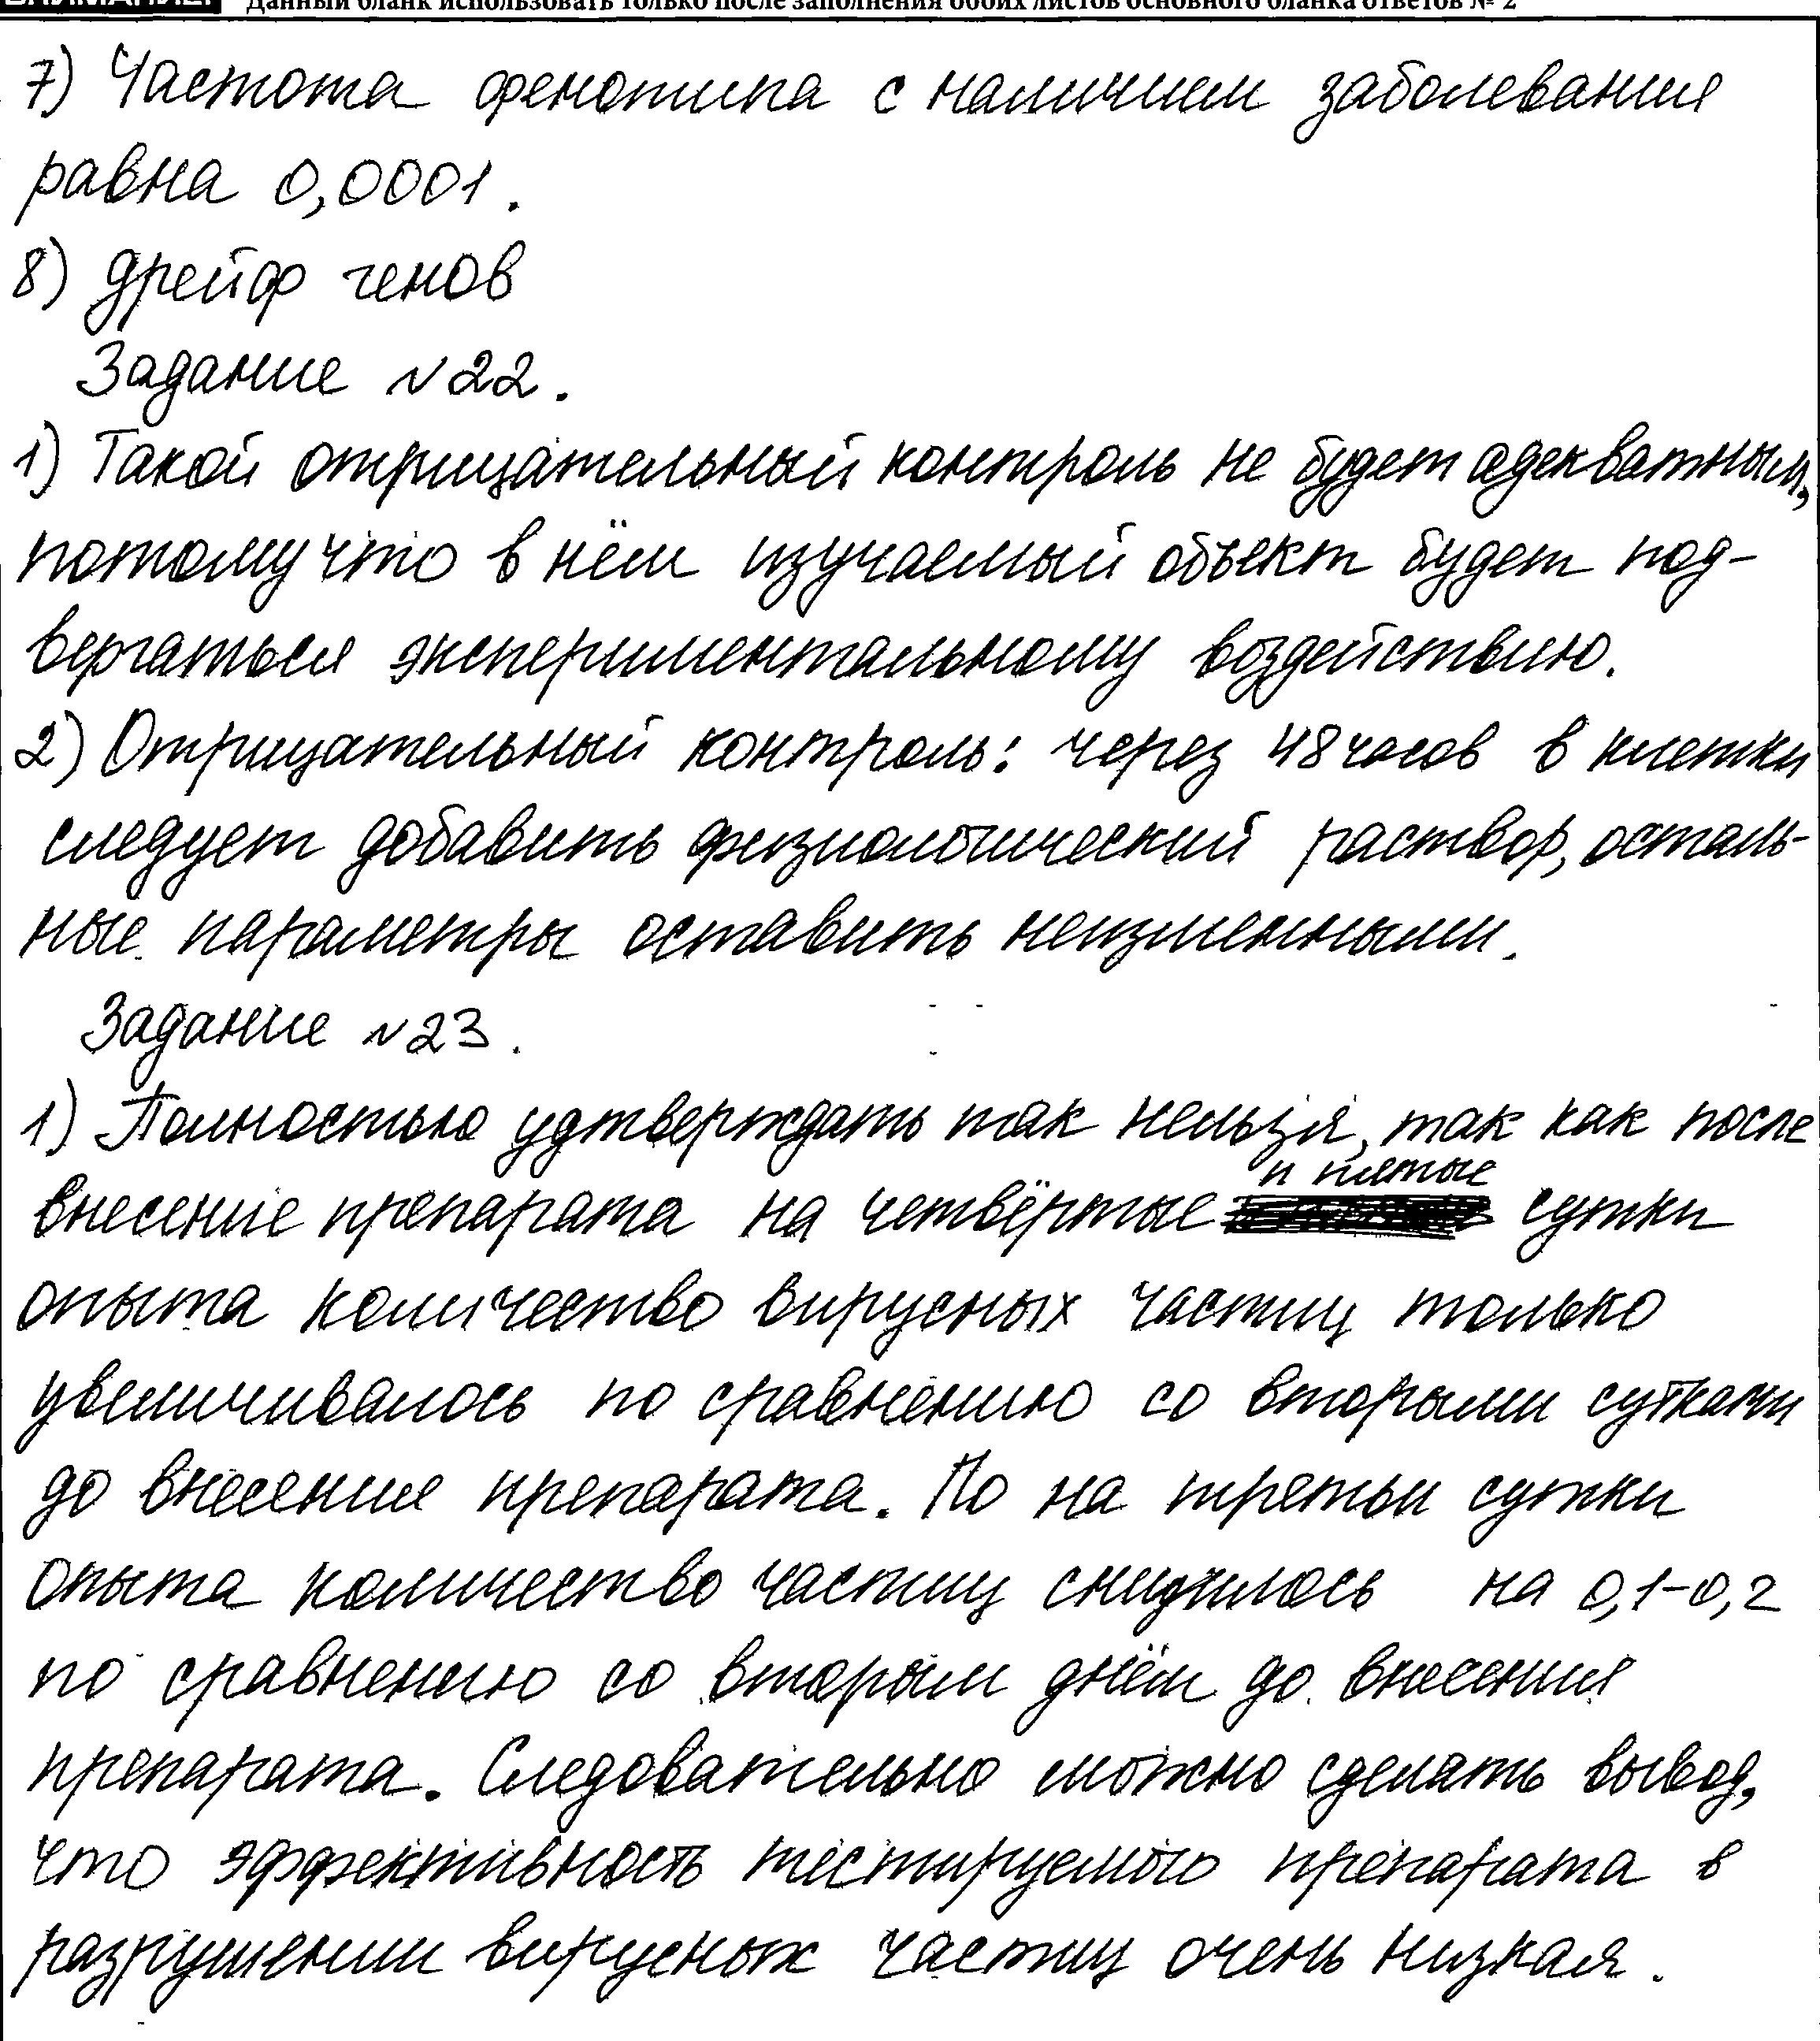 Данный бланк использовать только после заполнения обоих листов основного бланка ответов № 2
7) Частота фенотипа с наличием заболевания
равна 0,0001.
8) дрейф генов
Задание №22.
1) Такой отрицательный контроль не будет адекватным,
потому что в нём изучаемый объект будет под-
вергаться экспериментальному воздействию.
2) Отрицательный контроль: через 48 часов в клетки
следует добавить физиологический раствор, осталь-
ные параметры оставить неизменными.
Задание №23.
1) Полностью удтверждать так нельзя, так как после
и пятые
внесение препарата на четвёртые сутки
опыта количество вирусных частиц только
увеличивалось по сравнению со вторыми сутками
до внесение препарата. Но на третьи сутки
опыта количество частиц снизилось на 0,1-0,2
по сравнению со вторым днём до внесения
препарата. Следовательно можно сделать вывод,
что эффективность тестируемого препарата в
разрушении вирусных частиц очень низкая.